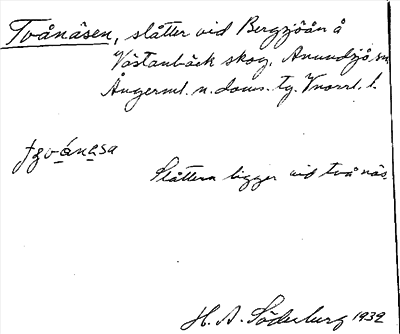 Tvånäsen, slåtter vid Bergsjöån å
Västanbäck skog, Anundsjö sn
Ångerml. n. doms. tg. Vnorrl. l.
tgvånesa
Slåttern ligger vid två näs.
H. A. Söderberg 1932